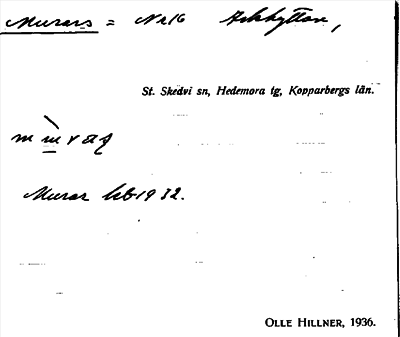 Murars = Nr 16 Askhyttan,
St. Skedvi sn, Hedemora tg, Kopparbergs län.
Murar kb 1932.
OLLE HILLNER, 1936.